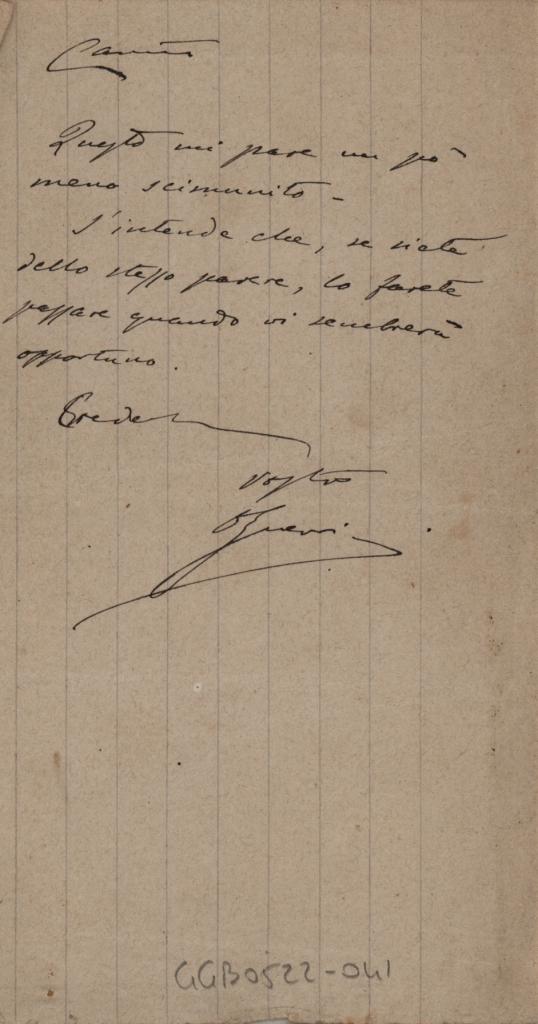 Carino
Questo mi pare un pò
meno scimunito -
S'intende che, se siete
dello stesso parere, lo farete
passare quando vi sembrerà
opportuno.
Vostro
OGuerrini
GGB0522-041